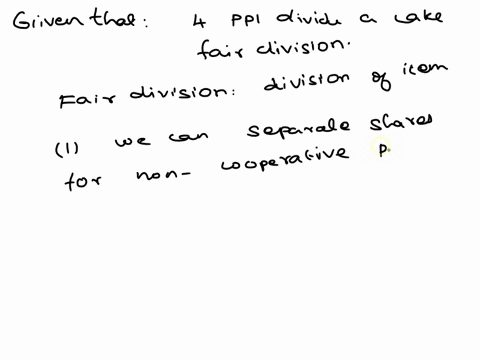 Given that: 4 PPl divide a cake
fair division.
Fair division: division of item
(1) we can separate shares
for non- cooperative P